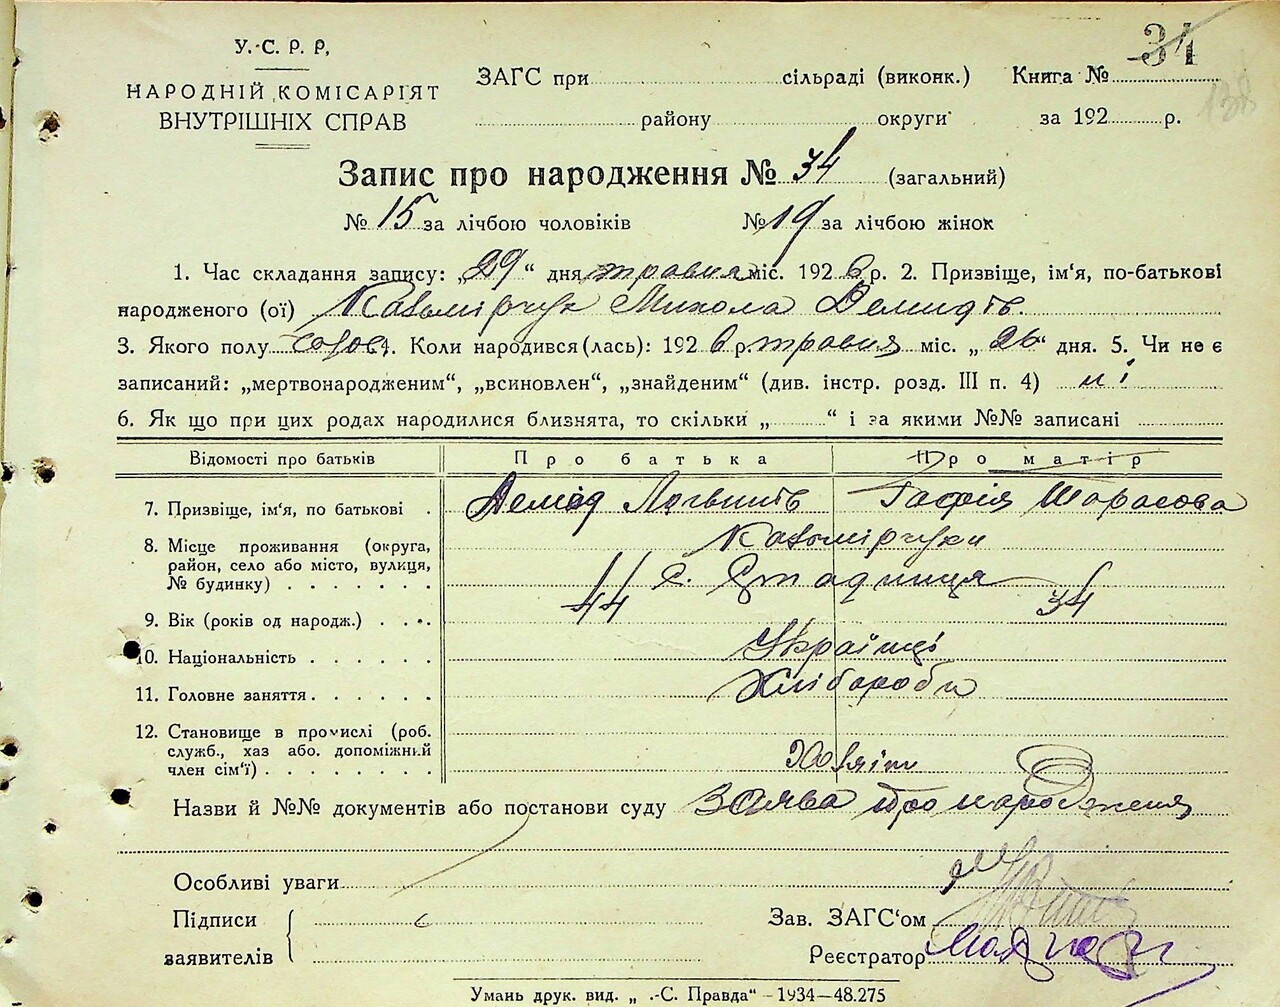 34
138
У.-С. Р. Р,
НАРОДНІЙ КОМІСАРІЯТ
ВНУТРІШНІХ СПРАВ
ЗАГС при сільраді (виконк.) Книга №
району округи за 192 р.
Запис про народження № 34 (загальний)
№ 15 за лічбою чоловіків № 19 за лічбою жінок
1. Час складання запису: „29“ дня травня міс. 1926 р. 2. Призвіще, ім'я, по-батькові
народженого (ої) Казьмірчук Микола Демидів.
3. Якого полу чолов. 4. Коли народився (лась): 1926 р. травня міс. „26“ дня. 5. Чи не є
записаний: „мертвонародженим“, „всиновлен“, „знайденим“ (див. інстр. розд. III п. 4) ні
6. Як що при цих родах народилися близнята, то скільки „ “ і за якими №№ записані
Відомості про батьків Про батька Про матір
7. Призвіще, ім'я, по батькові . Демид Логвинів Гафія Тарасова
Казьмірчуки
8. Місце проживання (округа,
район, село або місто, вулиця,
№ будинку) . . . . . . . с. Стадниця
9. Вік (років од народж.) . . . . 44 34
10. Національність . . . . . . Українці
11. Головне заняття . . . . . . Хлібороби
12. Становище в промислі (роб.
служб., хаз або. допоміжний
член сім'ї) . . . . . . . . Хозяїн
Назви й №№ документів або постанови суду Заява про народження
Особливі уваги
Підписи
заявителів
Зав. ЗАГС'ом
Реєстратор
Умань друк. вид. „ .-С. Правда“ - 1934—48.275